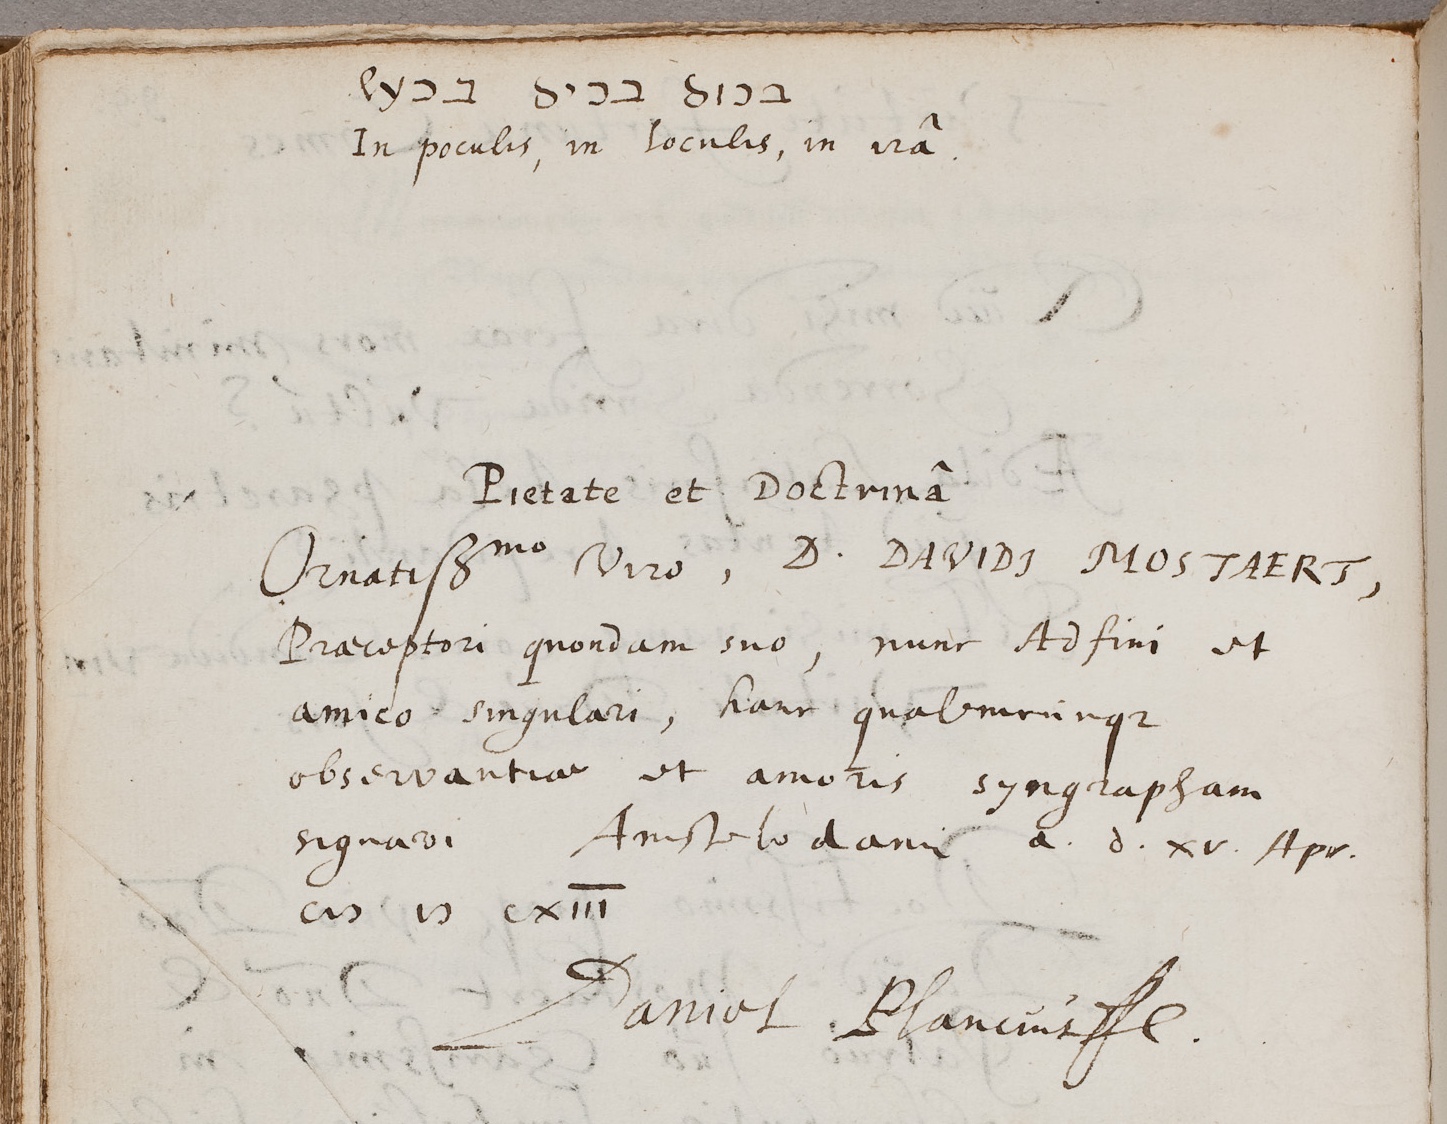 בכוס בכיס בכעס
In poculis, in loculis, in irâ.
Pietate et Doctrinâ
Ornatiss^mo Viro, D. DAVIDI MOSTAERT,
Præceptori quondam suo, nunc Adfini et
amico singulari, hanc qualemcunq
observantiæ et amoris syngrapham
signavi Amstelodami a. d. xv. Apr.
CIↃ IↃ CXIII
Daniel Plancius